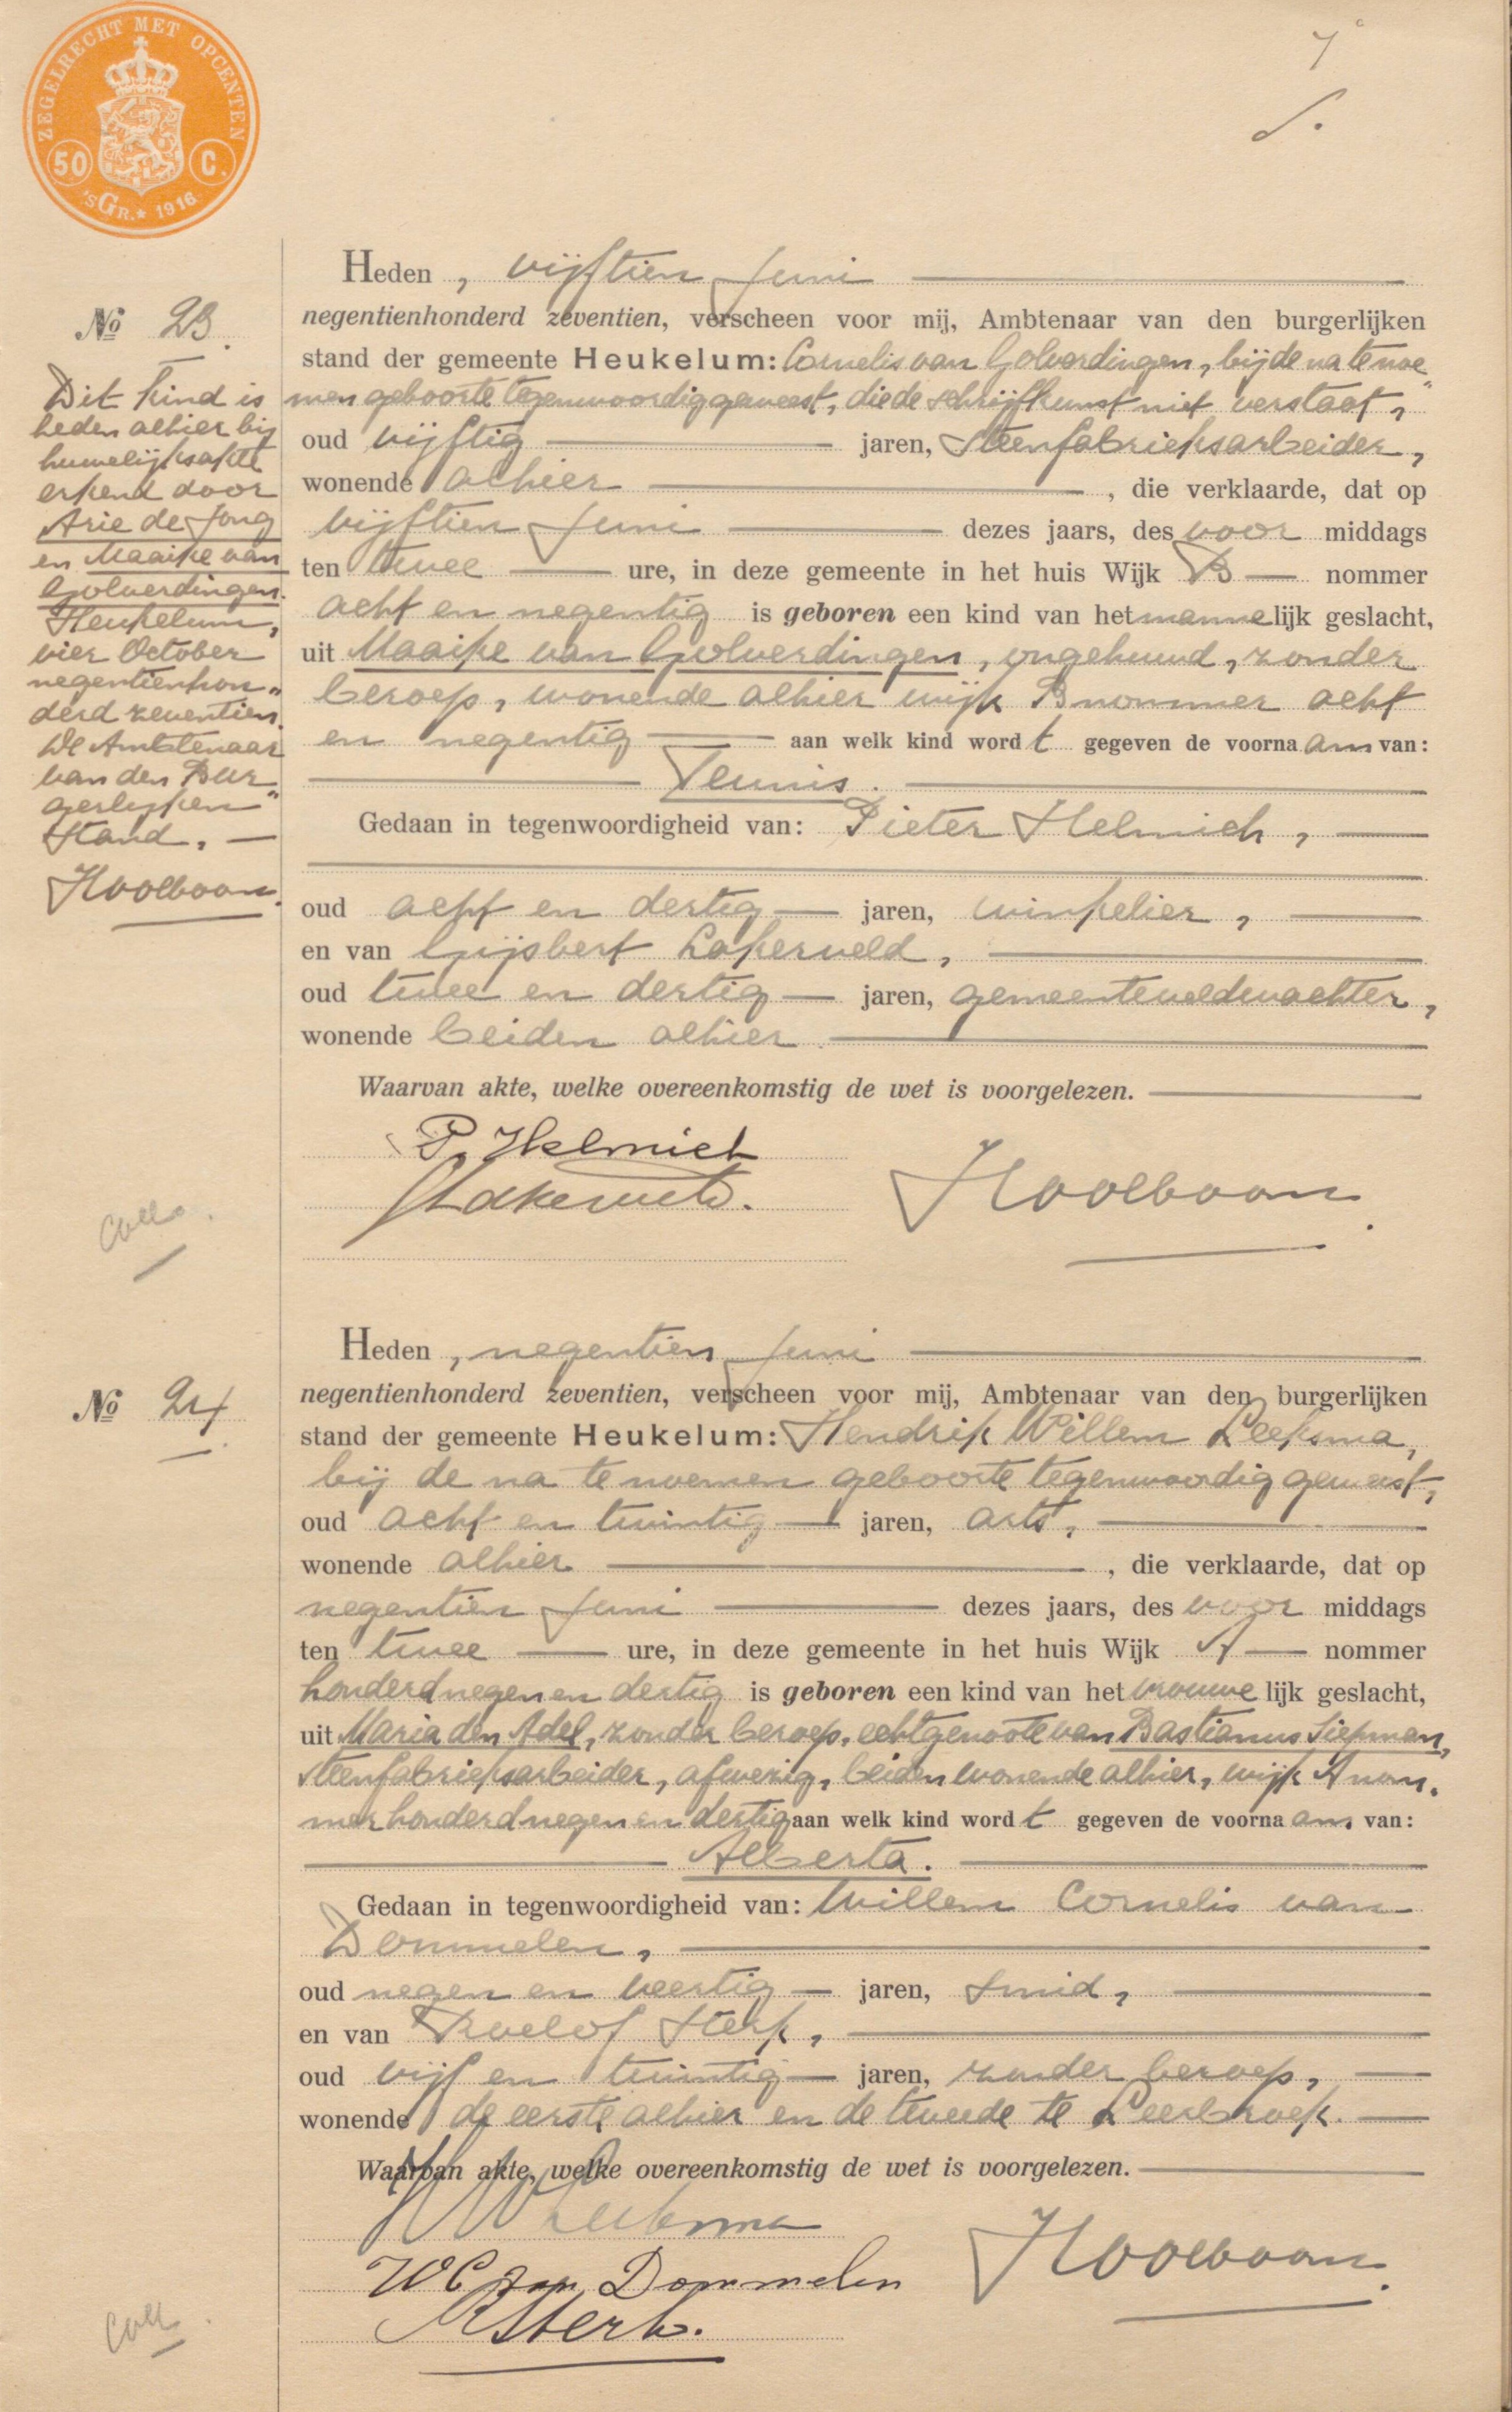 ZEGELRECHT MET OPCENTEN
50 C.
'SGR.★ 1916
7
Nº 23.
Dit kind is
heden alhier bij
huwelijksakte
erkend door
Arie de Jong
en Maaike van
Golverdingen.
Heukelum,
vier October
negentienhon„
derd zeventien.
De Ambtenaar
van den Bur„
gerlijken
Stand. —
Hoolboom.
Heden, vijftien Juni
negentienhonderd zeventien, verscheen voor mij, Ambtenaar van den burgerlijken
stand der gemeente Heukelum: Cornelis van Golverdingen, bij de na te noe„
men geboorte tegenwoordig geweest, die de schrijfkunst niet verstaat,
oud vijftig jaren, Steenfabrieksarbeider,
wonende alhier, die verklaarde, dat op
vijftien Juni dezes jaars, des voor middags
ten twee ure, in deze gemeente in het huis Wijk B nommer
acht en negentig is geboren een kind van het mannelijk geslacht,
uit Maaike van Golverdingen, ongehuwd, zonder
beroep, wonende alhier wijk B nommer acht
en negentig aan welk kind wordt gegeven de voornaam van:
Teunis.
Gedaan in tegenwoordigheid van: Pieter Helmich,
oud acht en dertig jaren, winkelier,
en van Gijsbert Lakerveld,
oud twee en dertig jaren, gemeenteveldwachter,
wonende beiden alhier
Waarvan akte, welke overeenkomstig de wet is voorgelezen.
P. Helmich
GLakerveld.
Hoolboom.
Coll.
Nº 24.
Heden, negentien Juni
negentienhonderd zeventien, verscheen voor mij, Ambtenaar van den burgerlijken
stand der gemeente Heukelum: Hendrik Willem Leeksma,
bij de na te noemen geboorte tegenwoordig geweest,
oud acht en twintig jaren, arts,
wonende alhier, die verklaarde, dat op
negentien Juni dezes jaars, des voor middags
ten twee ure, in deze gemeente in het huis Wijk A nommer
honderd negen en dertig is geboren een kind van het vrouwelijk geslacht,
uit Maria den Adel, zonder beroep, echtgenoote van Bastianus Siepman,
steenfabrieksarbeider, afwezig, beiden wonende alhier, wijk A nom„
mer honderd negen en dertig aan welk kind wordt gegeven de voornaam van:
Alberta.
Gedaan in tegenwoordigheid van: Willem Cornelis van
Dommelen,
oud negen en veertig jaren, smid,
en van Roelof Sterk,
oud vijf en twintig jaren, zonder beroep,
wonende de eerste alhier en de tweede te Leerbroek.
Waarvan akte, welke overeenkomstig de wet is voorgelezen.
HW Leeksma
WC van Dommelen
RSterk.
Hoolboom.
Coll.